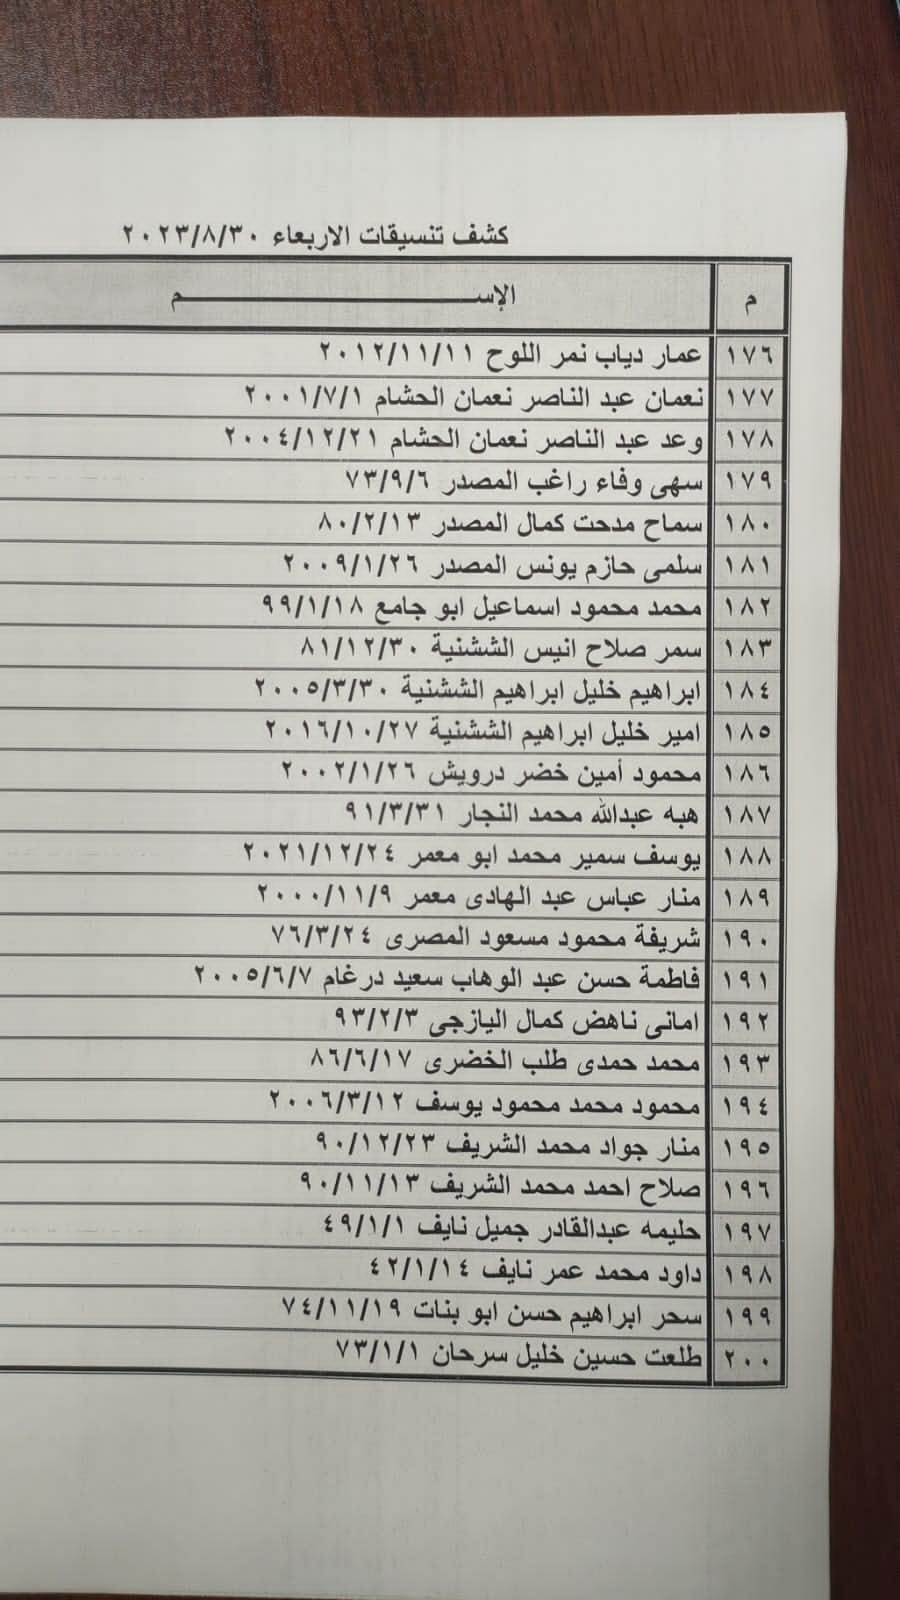 كشف تنسيقات الاربعاء ٢٠٢٣/٨/٣٠
م الإســـــــــــــــــــــــم
١٧٦ عمار دياب نمر اللوح ٢٠١٢/١١/١١
١٧٧ نعمان عبد الناصر نعمان الحشام ٢٠٠١/٧/١
١٧٨ وعد عبد الناصر نعمان الحشام ٢٠٠٤/١٢/٢١
١٧٩ سهى وفاء راغب المصدر ٧٣/٩/٦
١٨٠ سماح مدحت كمال المصدر ٨٠/٢/١٣
١٨١ سلمى حازم يونس المصدر ٢٠٠٩/١/٢٦
١٨٢ محمد محمود اسماعيل ابو جامع ٩٩/١/١٨
١٨٣ سمر صلاح انيس الششنية ٨١/١٢/٣٠
١٨٤ ابراهيم خليل ابراهيم الششنية ٢٠٠٥/٣/٣٠
١٨٥ امير خليل ابراهيم الششنية ٢٠١٦/١٠/٢٧
١٨٦ محمود أمين خضر درويش ٢٠٠٢/١/٢٦
١٨٧ هبه عبدالله محمد النجار ٩١/٣/٣١
١٨٨ يوسف سمير محمد ابو معمر ٢٠٢١/١٢/٢٤
١٨٩ منار عباس عبد الهادى معمر ٢٠٠٠/١١/٩
١٩٠ شريفة محمود مسعود المصرى ٧٦/٣/٢٤
١٩١ فاطمة حسن عبد الوهاب سعيد درغام ٢٠٠٥/٦/٧
١٩٢ امانى ناهض كمال اليازجى ٩٣/٢/٣
١٩٣ محمد حمدى طلب الخضرى ٨٦/٦/١٧
١٩٤ محمود محمد محمود يوسف ٢٠٠٦/٣/١٢
١٩٥ منار جواد محمد الشريف ٩٠/١٢/٢٣
١٩٦ صلاح احمد محمد الشريف ٩٠/١١/١٣
١٩٧ حليمه عبدالقادر جميل نايف ٤٩/١/١
١٩٨ داود محمد عمر نايف ٤٢/١/١٤
١٩٩ سحر ابراهيم حسن ابو بنات ٧٤/١١/١٩
٢٠٠ طلعت حسين خليل سرحان ٧٣/١/١